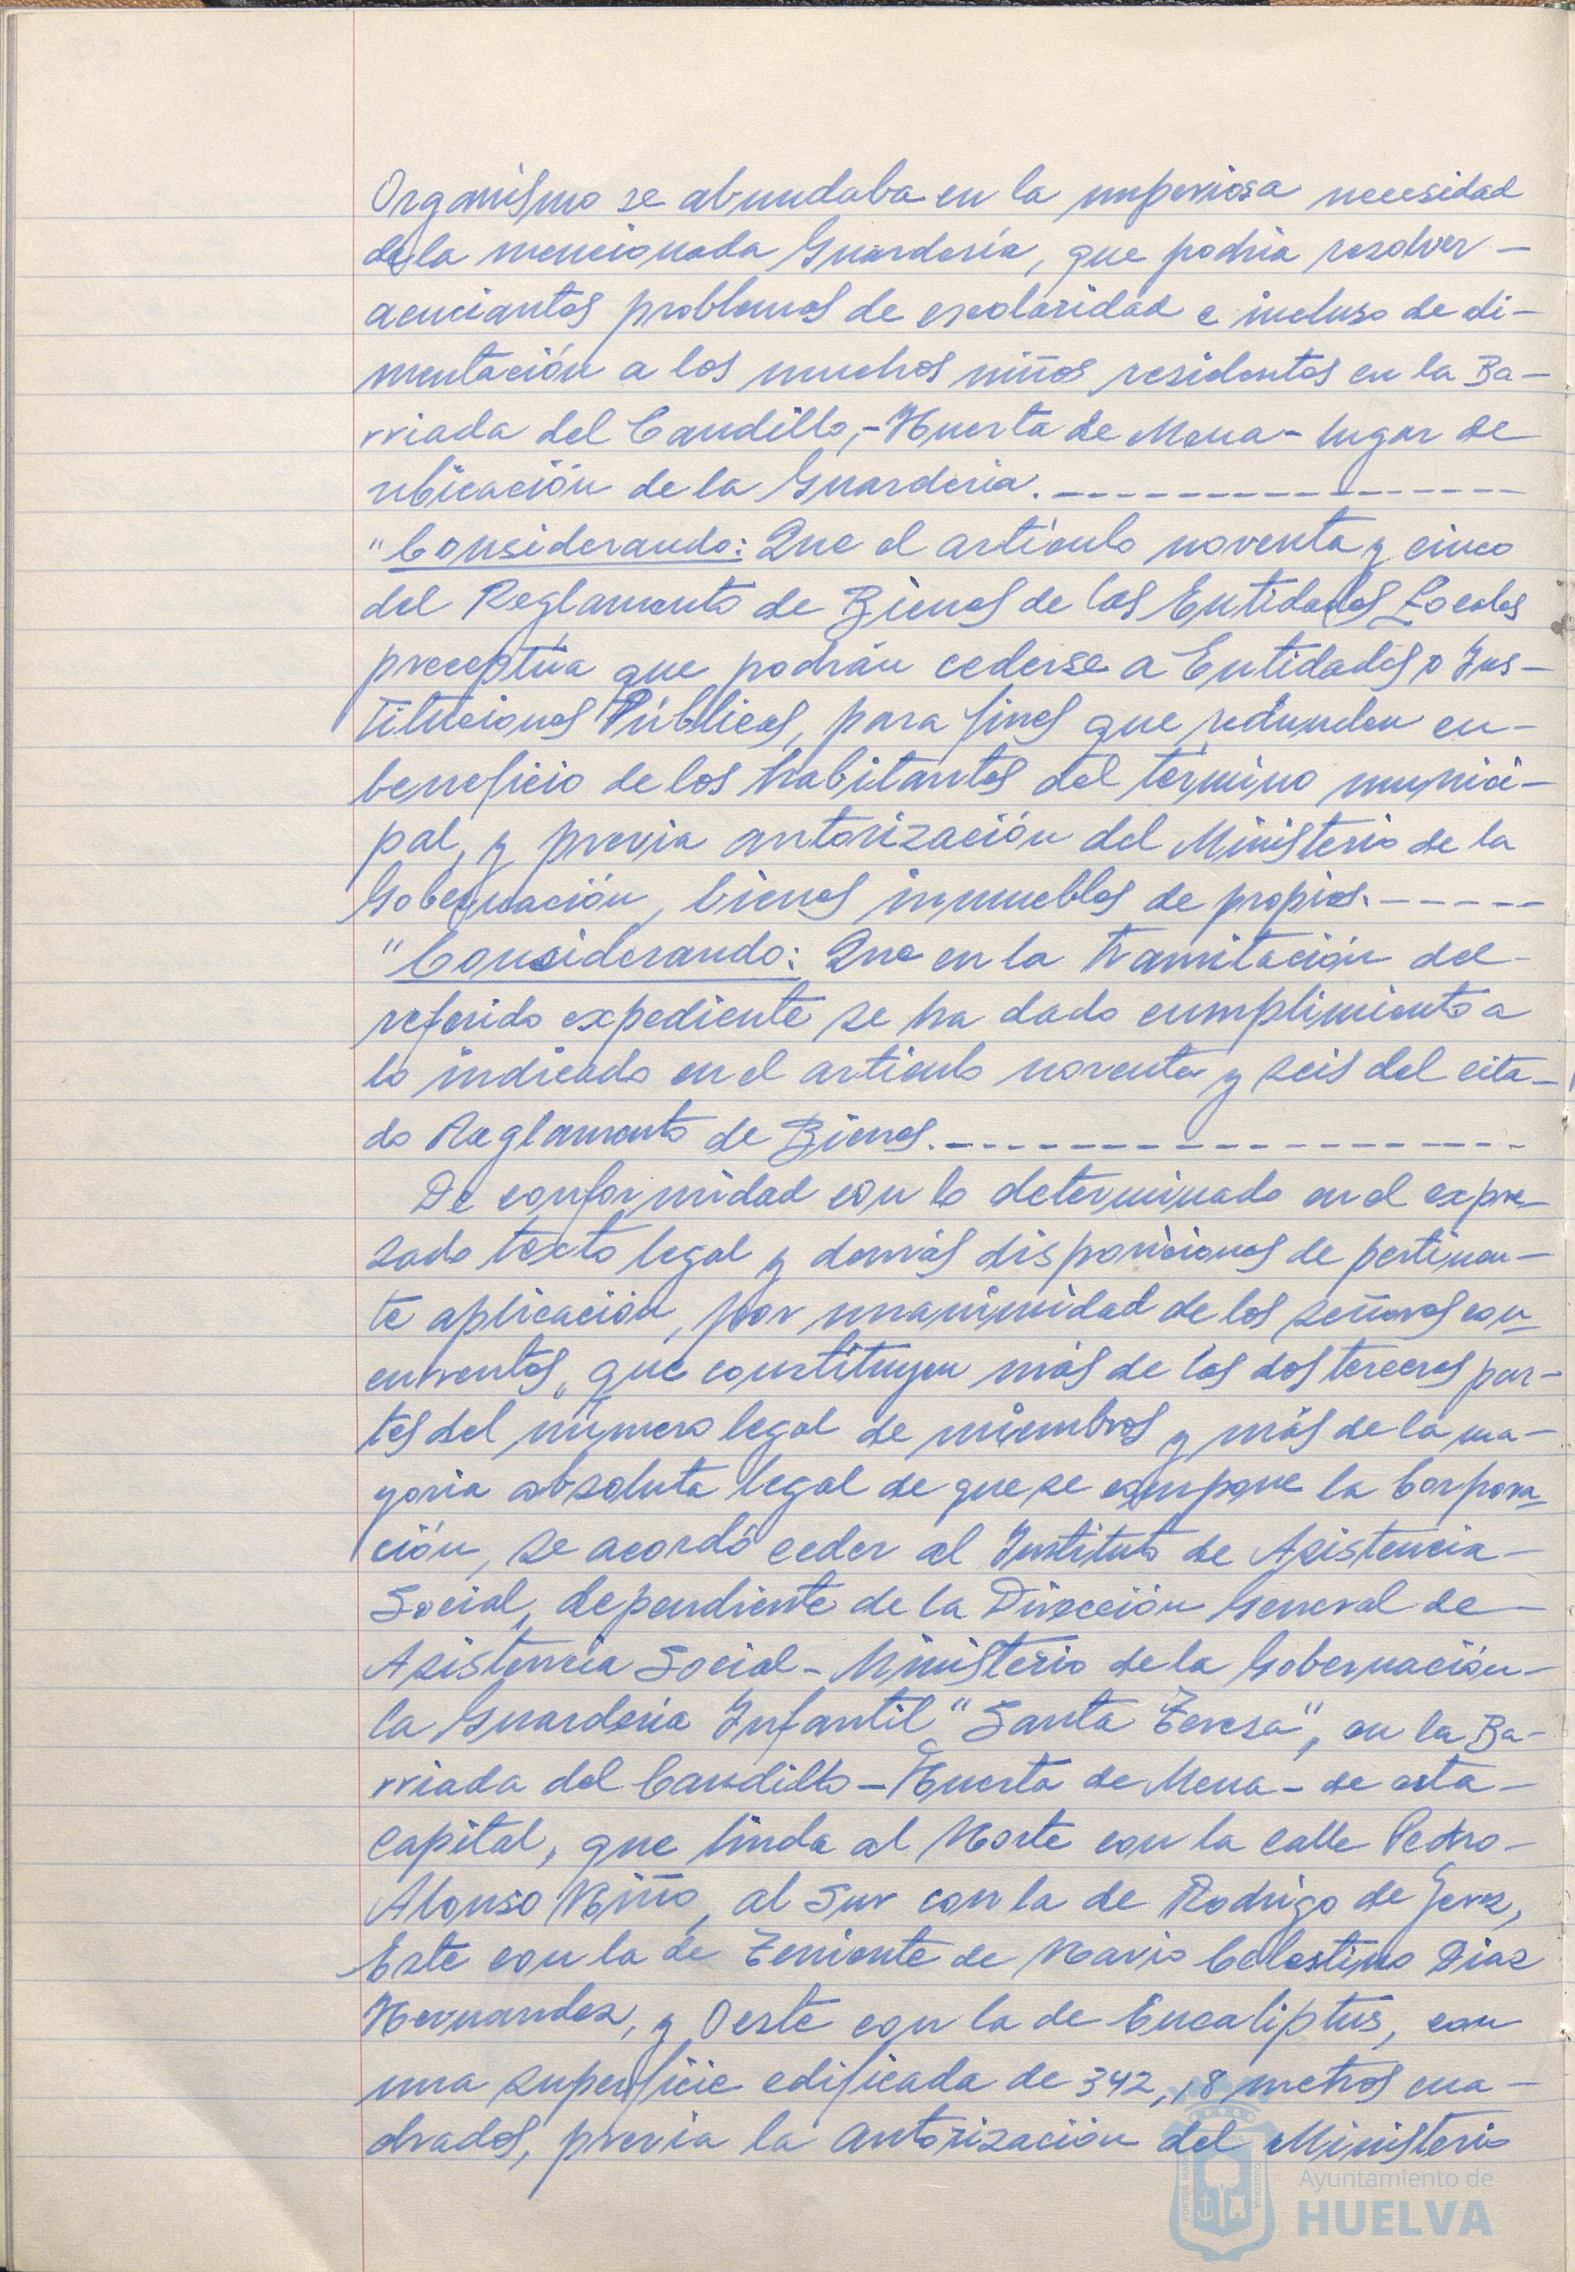 Organismo se abundaba en la imperiosa necesidad
de la mencionada Guardería, que podría resolver -
acuciantes problemas de escolaridad e incluso de ali-
mentación a los muchos niños residentes en la Ba-
rriada del Caudillo,-Huerta de Mena- lugar de
ubicación de la Guardería.----------------
"Considerando: Que el artículo noventa y cinco
del Reglamento de Bienes de las Entidades Locales
preceptúa que podrán cederse a Entidades o Ins-
tituciones Públicas, para fines que redunden en-
beneficio de los habitantes del término munici-
pal, y previa autorización del Ministerio de la
Gobernación, bienes inmuebles de propios.-----
"Considerando: Que en la tramitación del-
referido expediente se ha dado cumplimiento a
lo indicado en el artículo noventa y seis del cita-
do Reglamento de Bienes.----------------
De conformidad con lo determinado en el expre-
sado texto legal y demás disposiciones de pertinen-
te aplicación, por unanimidad de los señores con-
currentes, que constituyen más de las dos terceras par-
tes del número legal de miembros y más de la ma-
yoría absoluta legal de que se compone la Corpora-
ción, se acordó ceder al Instituto de Asistencia-
Social, dependiente de la Dirección General de-
Asistencia Social-Ministerio de la Gobernación-
la Guardería Infantil "Santa Teresa", en la Ba-
rriada del Caudillo-Huerta de Mena-de esta-
capital, que linda al Norte con la calle Pedro-
Alonso Niño, al Sur con la de Rodrigo de Jerez,
Este con la de Teniente de Navio Celestino Diaz
Hernandez, y Oeste con la de Eucaliptus, con
una superficie edificada de 342,18 metros cua-
drados, previa la autorización del Ministerio
Ayuntamiento de
HUELVA